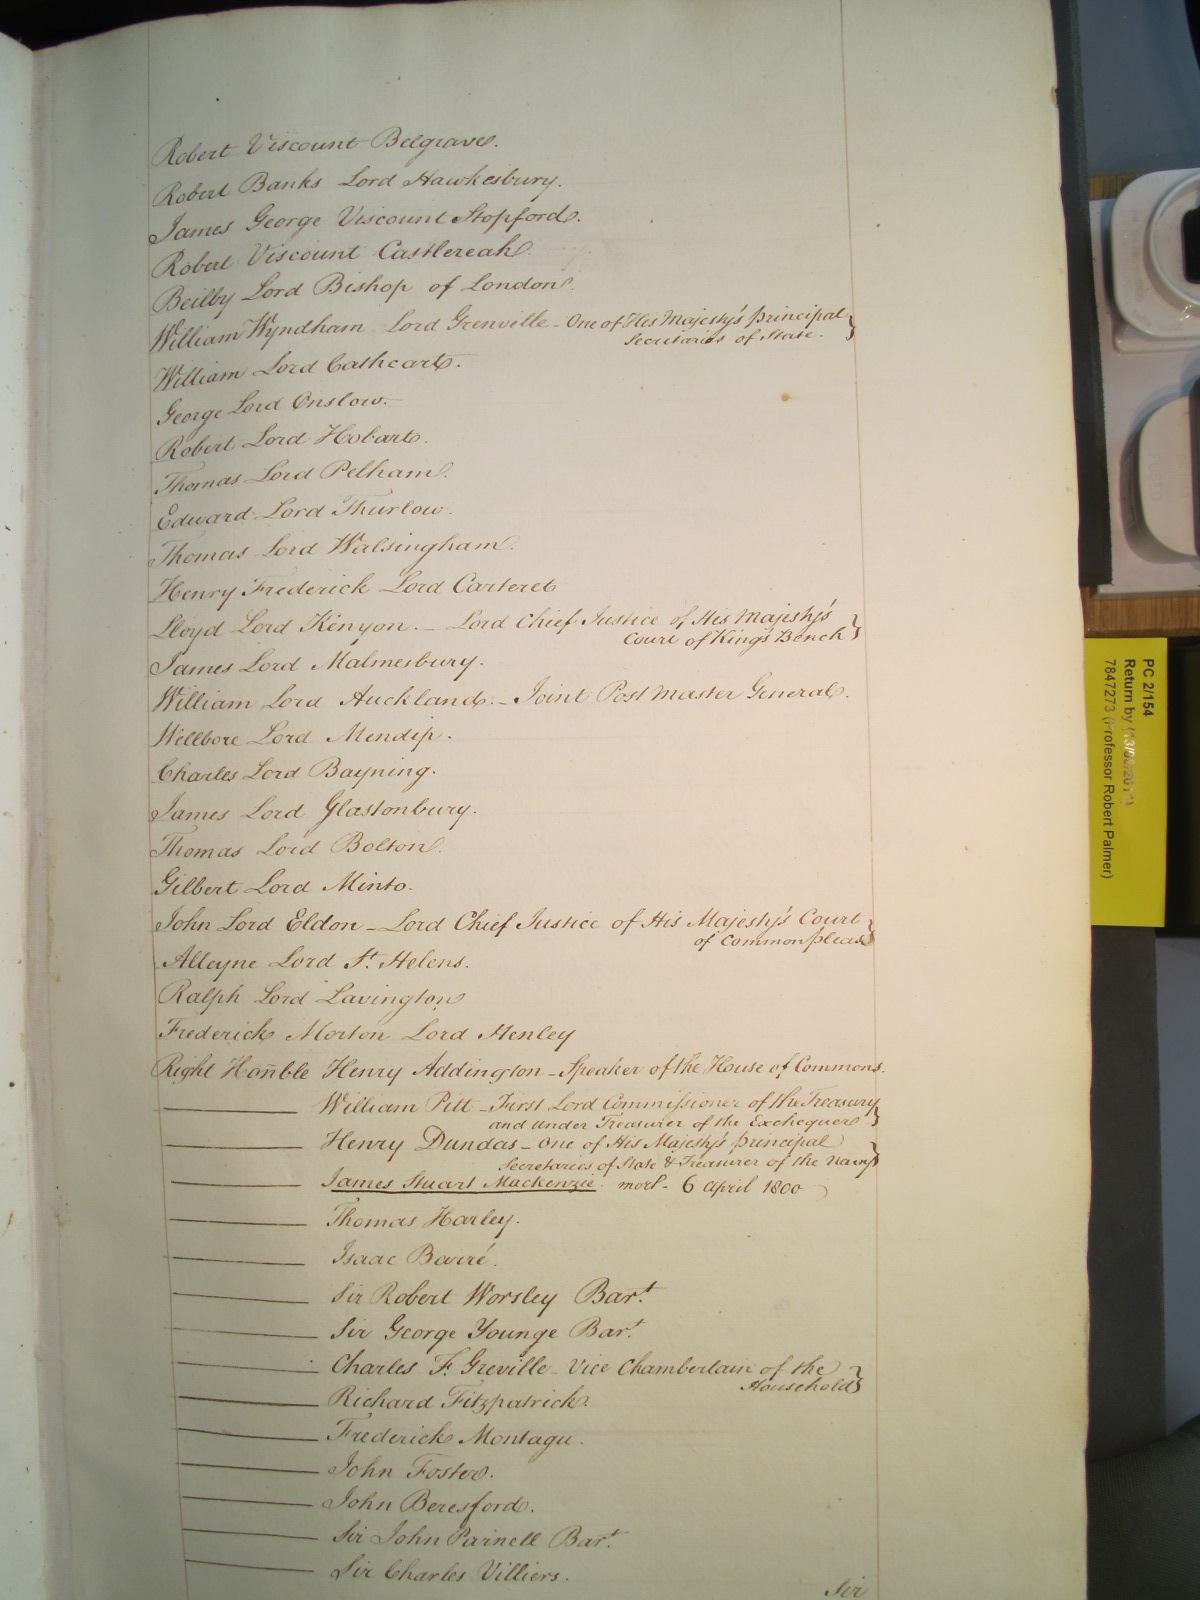 Robert Viscount Belgrave.
Robert Banks Lord Hawkesbury.
James George Viscount Stopford.
Robert Viscount Castlereah
Beilby Lord Bishop of London.
William Wyndham Lord Grenville - One of His Majesty's principal
Secretaries of State. }
William Lord Cathcart.
George Lord Onslow.
Robert Lord Hobart.
Thomas Lord Pelham.
Edward Lord Thurlow.
Thomas Lord Walsingham.
Henry Frederick Lord Carteret
Lloyd Lord Kenyon. - Lord Chief Justice of His Majesty's
Court of King's Bench }
James Lord Malmesbury.
William Lord Auckland. - Joint Post Master General.
Wellbore Lord Mendip.
Charles Lord Bayning.
James Lord Glastonbury.
Thomas Lord Bolton.
Gilbert Lord Minto.
John Lord Eldon - Lord Chief Justice of His Majesty's Court
of Common pleas }
Alleyne Lord St. Helens.
Ralph Lord Lavington
Frederick Morton Lord Henley
Right Hon̄ble Henry Addington - Speaker of the House of Commons.
——— William Pitt - First Lord Commissioner of the Treasury
and under Treasurer of the Exchequer }
——— Henry Dundas - one of His Majesty's principal
Secretaries of State & Treasurer of the Navy }
——— James Stuart Mackenzie. mort - 6 April 1800
——— Thomas Harley.
——— Isaac Barré.
——— Sir Robert Worsley Bart.
——— Sir George Younge Bart.
——— Charles F. Greville - Vice Chamberlain of the
Household }
——— Richard Fitzpatrick.
——— Frederick Montagu.
——— John Foster.
——— John Beresford.
——— Sir John Parnell Bart.
——— Sir Charles Villiers.
Sir
PC 2/154
Return by
7847273 (Professor Robert Palmer)